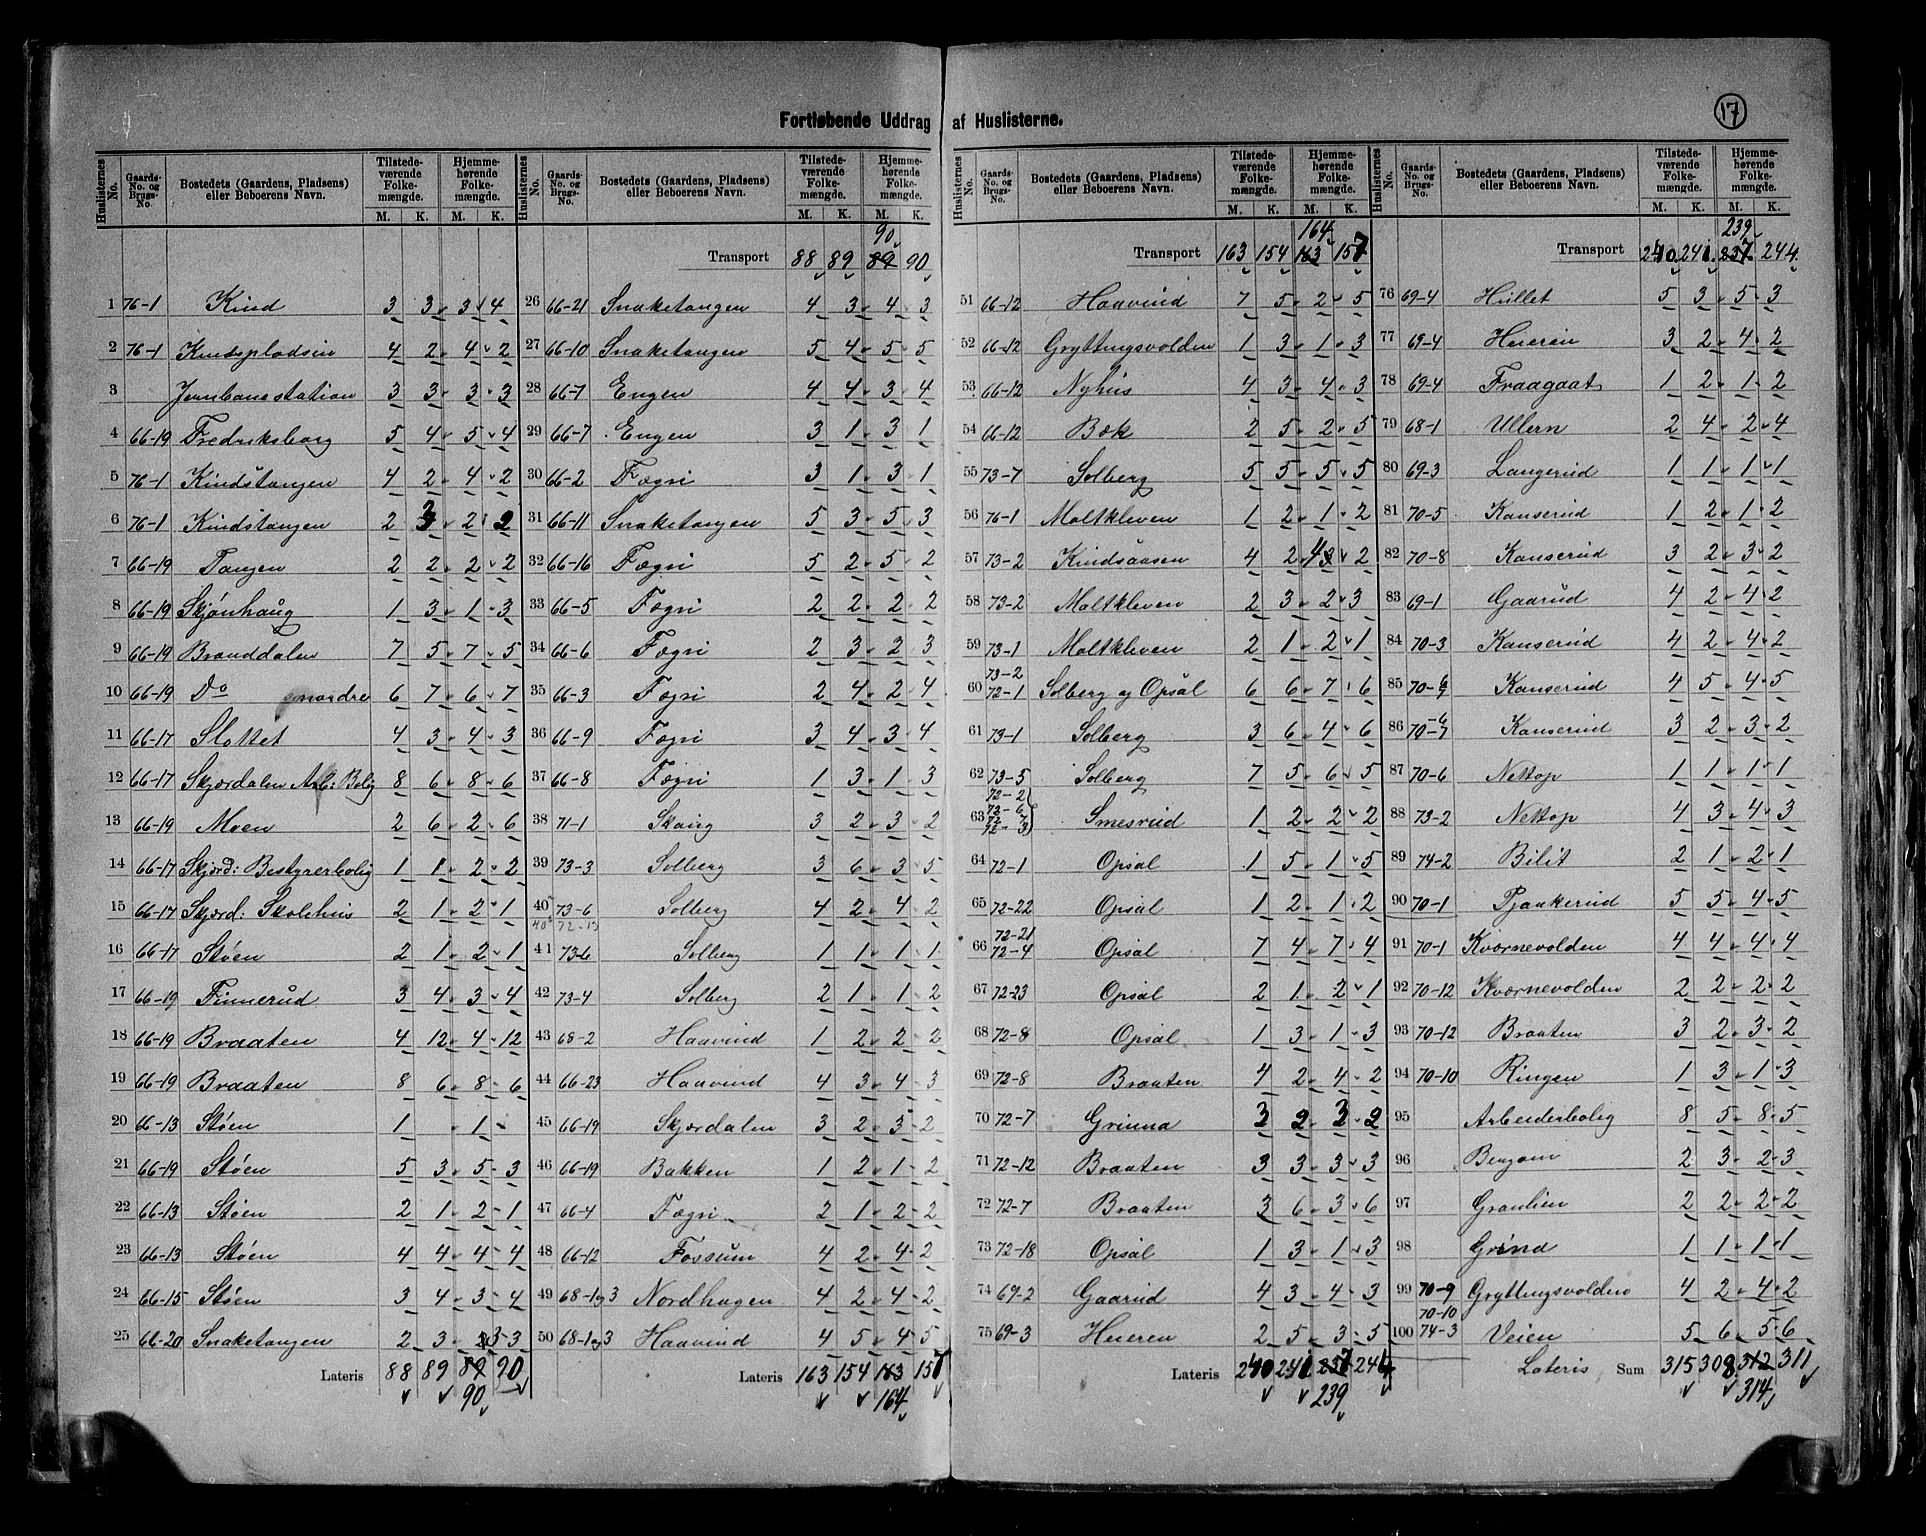 Fortløbende Uddrag af Huslisterne.
17
Huslisternes No. | Gaards-No. og Brugs-No. | Bostedets (Gaardens, Pladsens) eller Beboerens Navn. | Tilstedeværende Folkemængde. M. K. | Hjemmehørende Folkemængde. M. K.
1 76-1 Kind 3 3 3 4
2 76-1 Kindspladsen 4 2 4 2
3 Jernbanestation 3 3 3 3
4 66-19 Fredriksborg 5 4 5 4
5 76-1 Kindstangen 4 2 4 2
6 76-1 Kindstangen 2 2 2 2
7 66-19 Tangen 2 2 2 2
8 66-19 Skjønhaug 1 3 1 3
9 66-19 Branddalen 7 5 7 5
10 66-19 Do nordre 6 7 6 7
11 66-17 Slottet 4 3 4 3
12 66-17 Skjærdalen Arb: Bolig 8 6 8 6
13 66-19 Moen 2 6 2 6
14 66-17 Skjærd: Bestyrerbolig 1 1 2 2
15 66-17 Skjærd: Skolehus 2 1 2 1
16 66-17 Støen 2 1 2 1
17 66-19 Finnerud 3 4 3 4
18 66-19 Braaten 4 12 4 12
19 66-19 Braaten 8 6 8 6
20 66-13 Støen 1 1
21 66-19 Støen 5 3 5 3
22 66-13 Støen 2 1 2 1
23 66-13 Støen 4 4 4 4
24 66-15 Støen 3 4 3 4
25 66-20 Snaketangen 2 3 3 3
Lateris 88 89 89 90
90
90
Transport 88 89 89 90
26 66-21 Snaketangen 4 3 4 3
27 66-10 Snaketangen 5 4 5 5
28 66-7 Engen 4 4 3 4
29 66-7 Engen 3 1 3 1
30 66-2 Fægri 3 1 3 1
31 66-11 Snaketangen 5 3 5 3
32 66-16 Fægri 5 2 5 2
33 66-5 Fægri 2 2 2 2
34 66-6 Fægri 2 3 2 3
35 66-3 Fægri 2 4 2 4
36 66-9 Fægri 3 4 3 4
37 66-8 Fægri 1 3 1 3
38 71-1 Skaug 3 2 3 2
39 73-3 Solberg 3 6 3 5
40 73-6 Solberg 4 2 4 2
41 73-6 Solberg 1 1 1 1
42 73-4 Solberg 2 1 1 2
43 68-2 Haavind 1 2 2 2
44 66-23 Haavind 4 3 4 3
45 66-19 Skjærdalen 3 2 5 2
46 66-19 Bakken 1 2 1 2
47 66-4 Fægri 2 1 2 2
48 66-12 Fossum 4 2 4 2
49 68-1og3 Nordhagen 4 2 4 2
50 68-1og3 Haavind 4 5 4 5
Lateris 163 154 163 157
164
164
Transport 163 154 163 157
51 66-12 Haavind 7 5 2 5
52 66-12 Gryttingsvolden 1 3 1 3
53 66-12 Nyhus 4 3 4 3
54 66-12 Bæk 2 5 2 5
55 73-7 Solberg 5 5 5 5
56 76-1 Moltkleven 1 2 1 2
57 73-2 Kindsaasen 4 2 4 3 2
58 73-2 Moltkleven 2 3 2 3
59 73-1 Moltkleven 2 1 2 1
60 73-2 72-1 Solberg og Opsal 6 6 7 6
61 73-1 Solberg 3 6 4 6
62 73-5 Solberg 7 5 6 5
63 72-2 72-6 72-7 72-3 Smesrud 1 2 2 2
64 72-1 Opsal 1 5 1 5
65 72-22 Opsal 1 2 1 2
66 72-21 72-4 Opsal 7 4 7 4
67 72-23 Opsal 2 1 2 1
68 72-8 Opsal 1 3 1 3
69 72-8 Braaten 4 2 4 2
70 72-7 Grinna 3 2 3 2
71 72-12 Braaten 3 3 3 3
72 72-7 Braaten 3 6 3 6
73 72-18 Opsal 1 3 1 3
74 69-2 Gaarud 4 3 4 3
75 69-3 Hueren 2 5 3 5
Lateris 240 241 237 244
239
239
Transport 240 241 237 244
76 69-4 Hullet 5 3 5 3
77 69-4 Hueren 3 2 4 2
78 69-4 Fraagaat 1 2 1 2
79 68-1 Ullern 2 4 2 4
80 69-3 Langerud 1 1 1 1
81 70-5 Kanserud 1 2 1 2
82 70-8 Kanserud 3 2 3 2
83 69-1 Gaarud 4 2 4 2
84 70-3 Kanserud 4 2 4 2
85 70-6 7 Kanserud 4 5 4 5
86 70-6 70-7 Kanserud 3 2 3 2
87 70-6 Nettop 1 1 1 1
88 73-2 Nettop 4 3 4 3
89 74-2 Bilit 2 1 2 1
90 70-1 Pjaakerud 5 5 4 5
91 70-1 Kværnevolden 4 4 4 4
92 70-12 Kværnevolden 2 2 2 2
93 70-12 Braaten 3 2 3 2
94 70-10 Ringen 1 3 1 3
95 Arbeiderbolig 8 5 8 5
96 2 3 2 3
97 Granlien 2 2 2 2
98 Grind 1 1 1 1
99 70-9 Gryttingsvolden 4 2 4 2
100 70-10 74-3 Veien 5 6 5 6
Lateris Sum 315 308 312 311
314